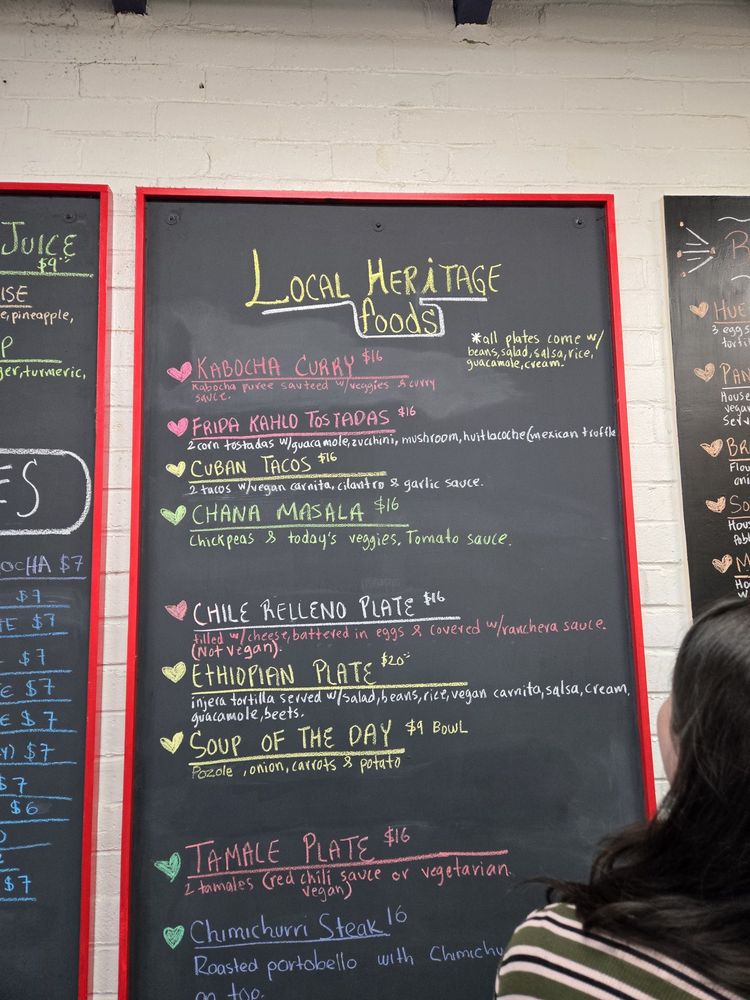 JUICE
$9
ISE
e, pineapple,
P
ger, turmeric,
ES
OCHA $7
$7
TE $7
$7
E $7
E $7
) $7
$7
$6
$7
LOCAL HERITAGE
foods
*all plates come w/
beans, salad, salsa, rice,
guacamole, cream.
KABOCHA CURRY $16
Kabocha puree sauteed w/veggies & curry
sauce.
FRIDA KAHLO TOSTADAS $16
2 corn tostadas w/guacamole, zucchini, mushroom, huitlacoche (mexican truffle
CUBAN TACOS $16
2 tacos w/vegan carnita, cilantro & garlic sauce.
CHANA MASALA $16
Chickpeas & today's veggies, Tomato sauce.
CHILE RELLENO PLATE $16
filled w/cheese, battered in eggs & covered w/ranchera sauce.
(Not vegan).
ETHIOPIAN PLATE $20
injera tortilla served w/salad, beans, rice, vegan carnita, salsa, cream,
guacamole, beets.
SOUP OF THE DAY $9 BOWL
Pozole, onion, carrots & potato
TAMALE PLATE $16
2 tamales (red chili sauce or vegetarian
vegan)
Chimichurri Steak 16
Roasted portobello with Chimichu
on top.
HUE
3 eggs
tortil
PAN
House
vega
Serv
BR
Flou
oni
SO
Hous
M
Ho
w